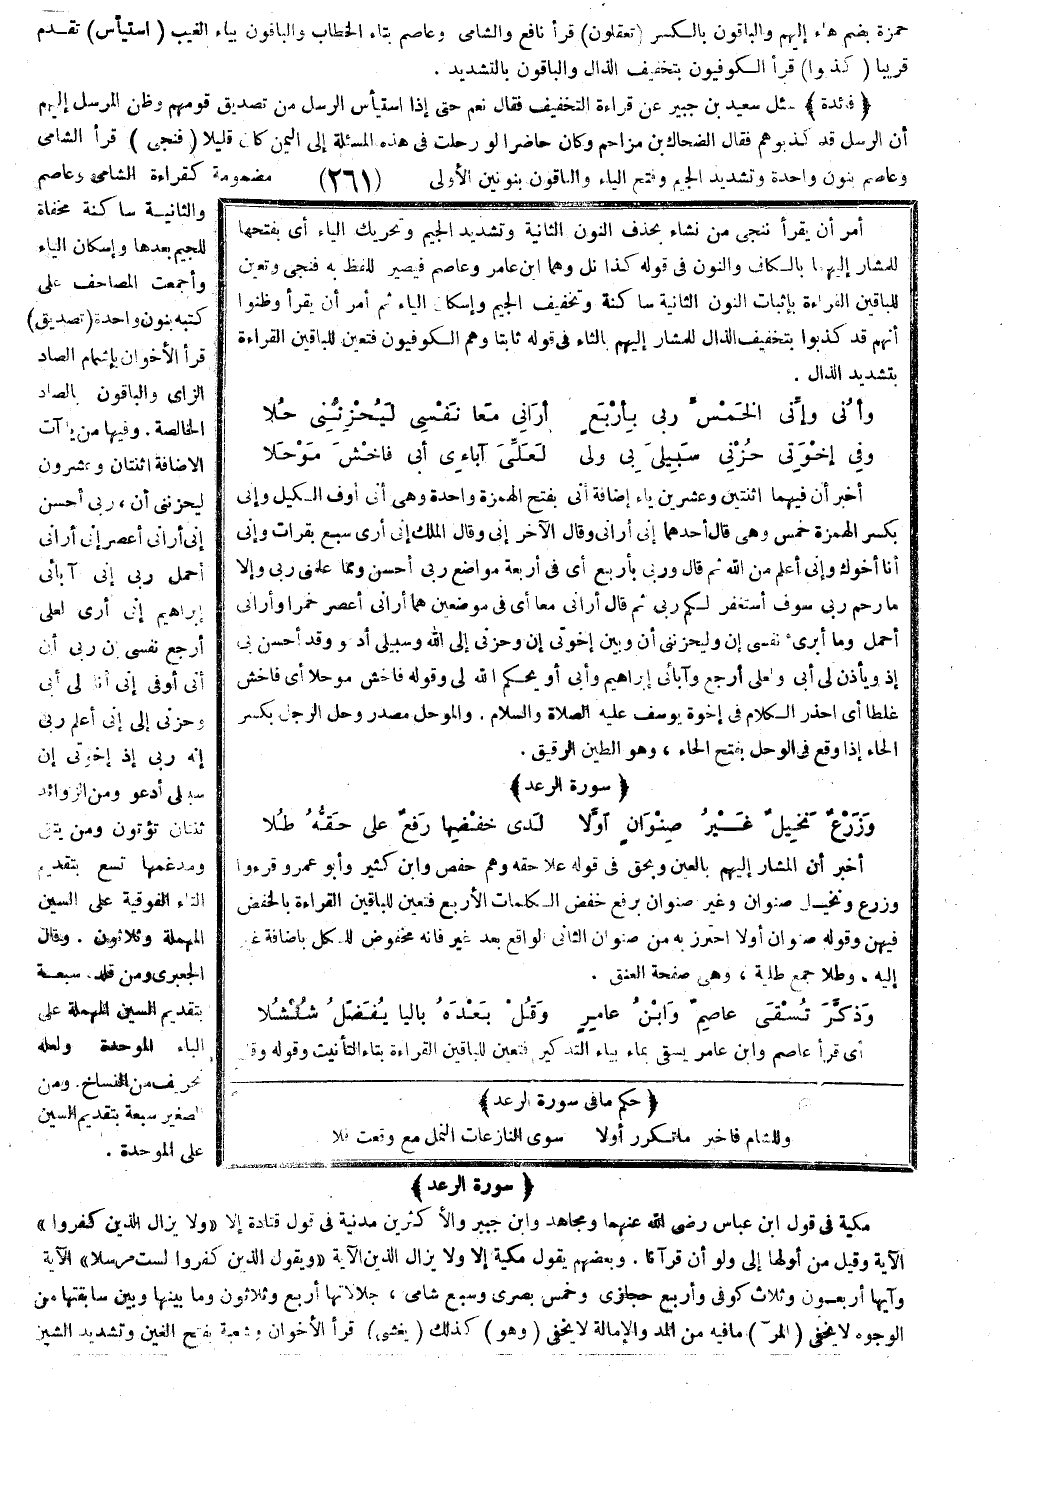 حمزة بضم هاء إليهم والباقون بالكسر (تعقلون) قرأ نافع والشامى وعاصم بتاء الخطاب والباقون بياء الغيب (استيأس) تقدم
قريبا (كذبوا) قرأ الكوفيون بتخفيف الذال والباقون بالتشديد .
﴿ فائدة ﴾ سئل سعيد بن جبير عن قراءة التخفيف فقال نعم حتى إذا استيأس الرسل من تصديق قومهم وظن المرسل إليهم
أن الرسل قد كذبوهم فقال الضحاك بن مزاحم وكان حاضرا لو رحلت فى هذه المسئلة إلى اليمن كان قليلا (فنجى) قرأ الشامى
وعاصم بنون واحدة وتشديد الجيم وفتح الياء والباقون بنونين الأولى (٢٦١) مضمومة كقراءة الشامى وعاصم
والثانيـة ساكنة مخفاة
للجيم بعدها وإسكان الياء
وأجمعت المصاحف على
كتبه بنون واحدة (تصديق)
قرأ الأخوان بإشمام الصاد
الزاى والباقون بالصاد
الخالصة . وفيها من يا آت
الاضافة اثنتان وعشرون
ليحزننى أن ، ربى أحسن
إنى أرانى أعصر إنى أرانى
أحمل ربى إنى آبائى
إبراهيم إنى أرى لعلى
أرجع نفسى إن ربى أن
أنى أوفى إنى أنا لى أبى
وحزنى إلى إنى أعلم ربى
إنه ربى إذ إخوتى إن
سبيلى أدعو ومن الزوائد
ثنتان تؤتون ومن يتق
ومدغمها تسع بتقديم
التاء الفوقية على السين
المهملة وثلاثون . وقال
الجعبرى ومن قلد . سبعـة
بتقديم السين المهملة على
الباء الموحدة ولعله
تحريف من النساخ . ومن
الصغير سبعة بتقديم السين
على الموحدة .
أمر أن يقرأ ننجى من نشاء بحذف النون الثانية وتشديد الجيم وتحريك الياء أى بفتحها
للمشار إليهما بالكاف والنون فى قوله كذا نل وهما ابن عامر وعاصم فيصير للفظ به فنجى وتعين
للباقين القراءة بإثبات النون الثانية ساكنة وتخفيف الجيم وإسكان الياء ثم أمر أن يقرأ وظنوا
أنهم قد كذبوا بتخفيف الذال للمشار إليهم بالثاء فى قوله ثابتا وهم الكوفيون فتعين للباقين القراءة
بتشديد الذال .
وأنى وإنى الخمس ربى بأربع أرانى معا نفسى ليحزننى حلا
وفى إخوتى حزنى سبيلى بى ولى لعلى آباءى أبى فاخش موحلا
أخبر أن فيهما اثنتين وعشرين ياء إضافة أنى بفتح الهمزة واحدة وهى أنى أوف الكيل وإنى
بكسر الهمزة خمس وهى قال أحدهما إنى أرانى وقال الآخر إنى وقال الملك إنى أرى سبع بقرات وإنى
أنا أخوك وإنى أعلم من الله ثم قال وربى بأربع أى فى أربعة مواضع ربى أحسن ومما علمنى ربى وإلا
ما رحم ربى سوف أستغفر لكم ربى ثم قال أرانى معا أى فى موضعين هما أرانى أعصر خمرا وأرانى
أحمل وما أبرئ نفسى إن وليحزننى أن وبين إخوتى إن وحزنى إلى الله وسبيلى أدعو وقد أحسن بى
إذ ويأذن لى أبى ولعلى أرجع وآبائى إبراهيم وأبى أو يحكم الله لى وقوله فاخش موحلا أى فاخش
غلطا أى احذر الكلام فى إخوة يوسف عليه الصلاة والسلام . والموحل مصدر وحل الرجل بكسر
الحاء إذا وقع فى الوحل بفتح الحاء ، وهو الطين الرقيق .
﴿ سورة الرعد ﴾
وَزَرْعٌ نَخِيلٌ غَيْرُ صِنْوَانٍ أوّلَا لدى خفضها رفع على حقّه طُلَا
أخبر أن المشار إليهم بالعين وبحق فى قوله علا حقه وهم حفص وابن كثير وأبو عمرو قرءوا
وزرع ونخيل صنوان وغير صنوان برفع خفض الكلمات الأربع فتعين للباقين القراءة بالخفض
فيهن وقوله صنوان أولا احترز به من صنوان الثانى الواقع بعد غير فانه مخفوض للكل باضافة غير
إليه . وطلا جمع طلية ، وهى صفحة العنق .
وَذكَّرَ تُسْقَى عاصمٌ وَابْنُ عامرٍ وَقُلْ بَعْدَهُ باليا يُفَضِّلُ شُلْشُلا
أى قرأ عاصم وابن عامر يسقى بماء بياء التذكير فتعين للباقين القراءة بتاء التأنيث وقوله وقل
﴿ حكم ما فى سورة الرعد ﴾
وللشام فاخبر ما تكرر أولا سوى النازعات النمل مع وقعت فلا
﴿ سورة الرعد ﴾
مكية فى قول ابن عباس رضى الله عنهما ومجاهد وابن جبير والأكثرين مدنية فى قول قتادة إلا «ولا يزال الذين كفروا»
الآية وقيل من أولها إلى ولو أن قرآنا . وبعضهم يقول مكية إلا ولا يزال الذين الآية «ويقول الذين كفروا لست مرسلا» الآية
وآيها أربعون وثلاث كوفى وأربع حجازى وخمس بصرى وسبع شامى ، جلالاتها أربع وثلاثون وما بينها وبين سابقتها من
الوجوه لا يخفى (المرٓ) ما فيه من المد والإمالة لا يخفى (وهو) كذلك (يغشى) قرأ الأخوان وشعبة بفتح الغين وتشديد الشين